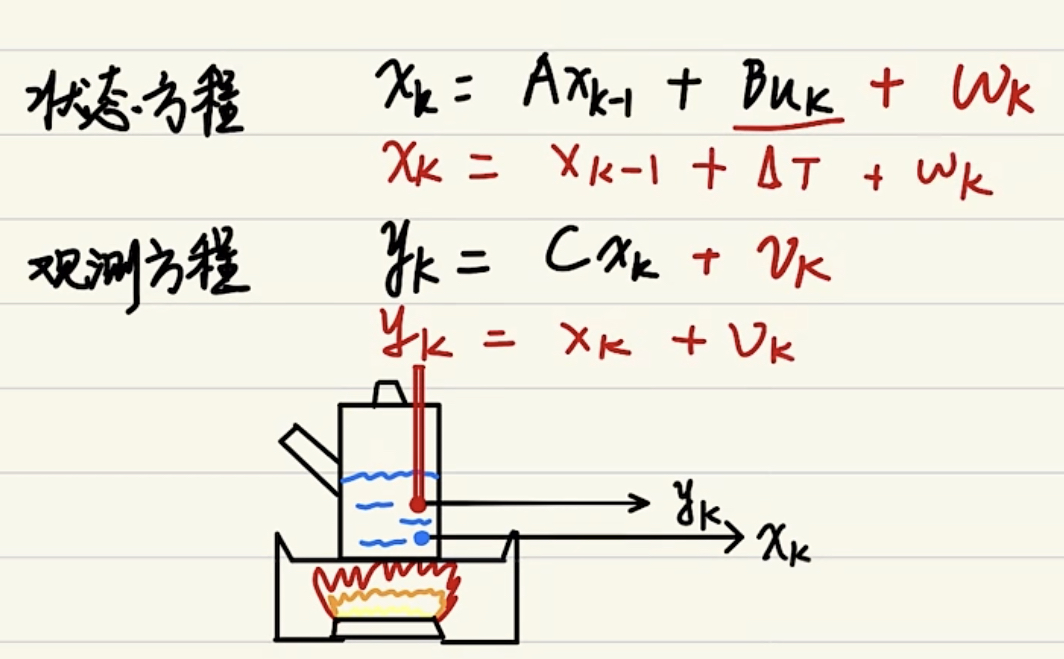 状态方程 xₖ = Axₖ₋₁ + Buₖ + wₖ
xₖ = xₖ₋₁ + ΔT + wₖ
观测方程 yₖ = Cxₖ + vₖ
yₖ = xₖ + vₖ
yₖ
xₖ